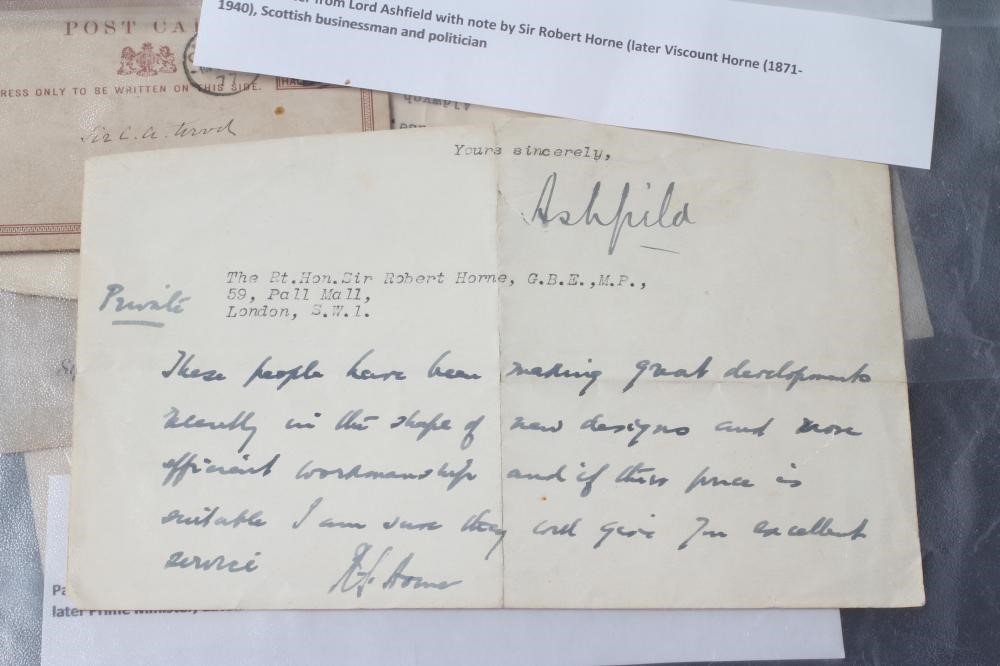 POST CA
RESS ONLY TO BE WRITTEN ON THIS SIDE.
77
Sir C. A. Wood
from Lord Ashfield with note by Sir Robert Horne (later Viscount Horne (1871-
1940), Scottish businessman and politician
Yours sincerely,
Ashfield
The Rt.Hon.Sir Robert Horne, G.B.E.,M.P.,
59, Pall Mall,
London, S.W.1.
Private
These people have been making great developments
recently in the shape of new designs and more
efficient workmanship and if their price is
suitable I am sure they will give you excellent
service
R S Horne
later Prime Minister,